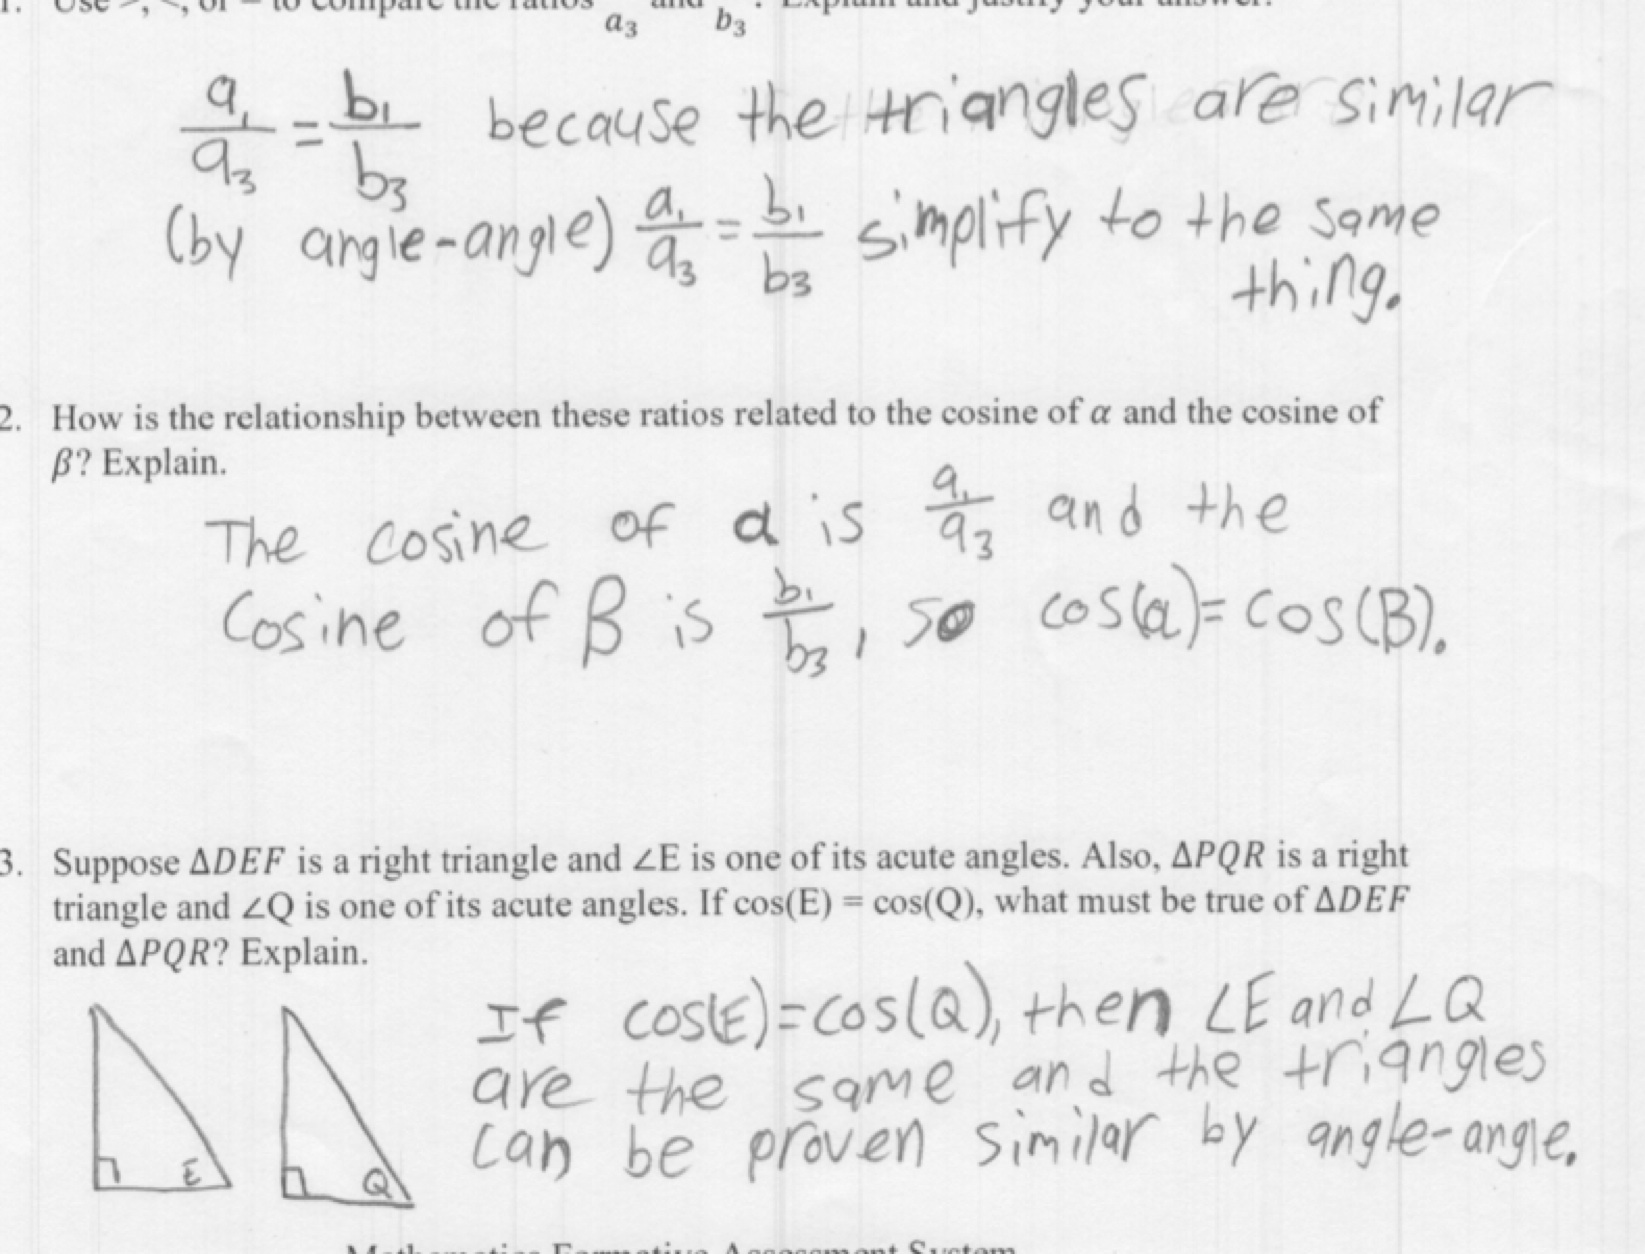 1. Use >, <, or = to compare the ratios a₁/a₃ and b₁/b₃. Explain and justify your answer.
a₁/a₃ = b₁/b₃ because the triangles are similar
(by angle-angle) a₁/a₃ = b₁/b₃ simplify to the same
thing.
2. How is the relationship between these ratios related to the cosine of α and the cosine of
β? Explain.
The cosine of α is a₁/a₃ and the
Cosine of β is b₁/b₃, so cos(α)=cos(β).
3. Suppose ΔDEF is a right triangle and ∠E is one of its acute angles. Also, ΔPQR is a right
triangle and ∠Q is one of its acute angles. If cos(E) = cos(Q), what must be true of ΔDEF
and ΔPQR? Explain.
If cos(E)=cos(Q), then ∠E and ∠Q
are the same and the triangles
can be proven similar by angle-angle.
E Q
Mathematics Formative Assessment System